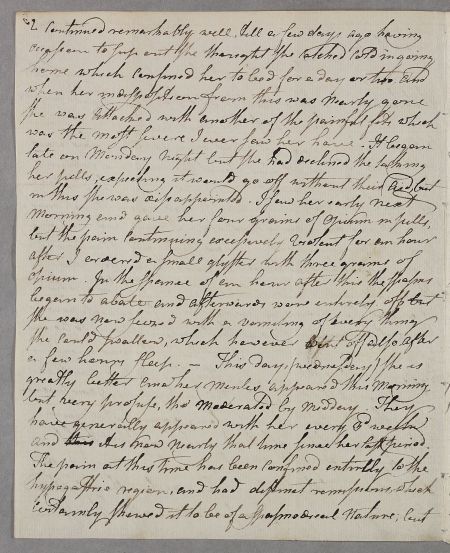 2 continued remarkably well, till a few days ago having
occasion to sup out she thought she catched cold in going
home which confined her to bed for a day or two. and
when her indisposition from this was nearly gone
she was attacked with another of the painful fits which
was the most severe I ever saw her have. It began
late on Monday night but she had declined the taking
her pills, expecting it would go off without their aid, but
in this she was disappointed. I saw her early next
Morning and gave her four grains of Opium in pills,
but the pain continuing excessively violent for an hour
after I ordered a small glyster with three grains of
Opium. In the space of an hour after this the spasms
began to abate and afterwards wore entirely off but
she was now seized with a vomiting of every thing
she could swallow, which however went off also after
a few hours sleep. — This day (wednesday) she is
greatly better and her menses appeared this Morning
but very profuse, tho moderated by midday. They
have generally appeared with her every 3d week
and it is now nearly that time since her last period.
The pain at this time has been confined entirely to the
hypogastric region, and had distinct remissions, which
certainly shewed it to be of a spasmodical nature, but